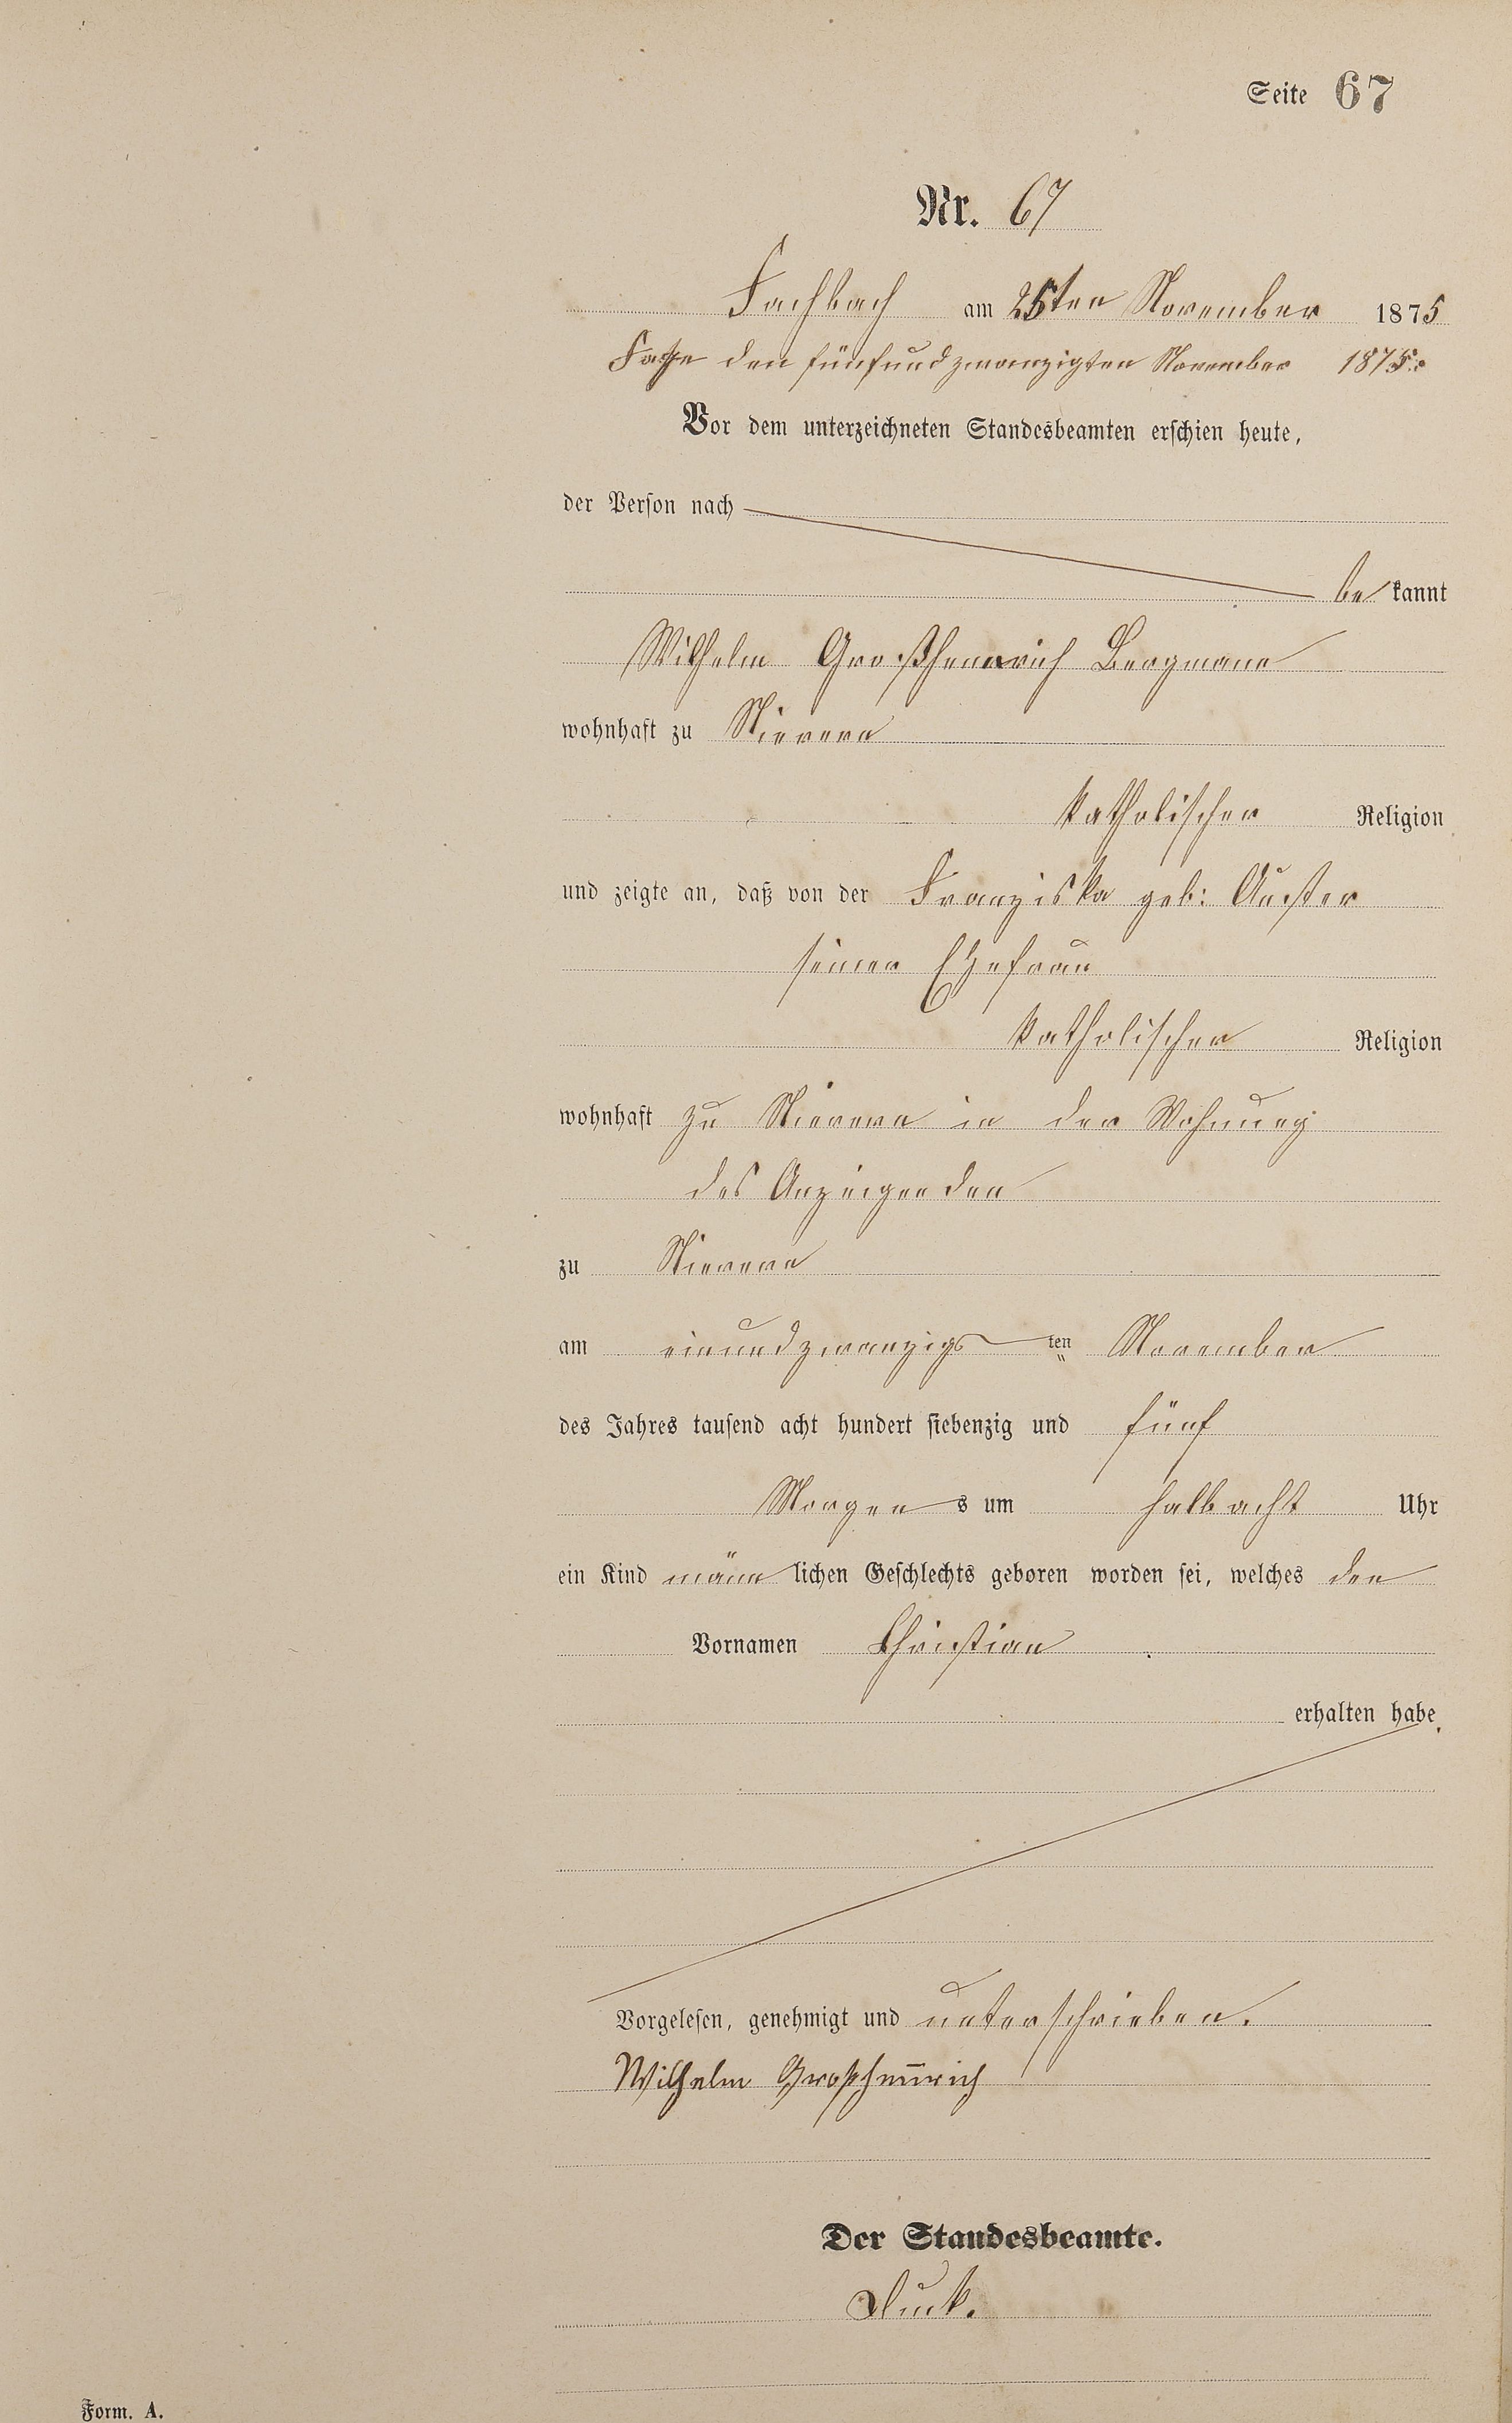 Seite 67
Nr. 67
Fachbach am 25ten November 1875
den fünfundzwanzigten November 1875.
Vor dem unterzeichneten Standesbeamten erschien heute,
der Person nach
be kannt
Wilhelm Großhennrich Bergmann
wohnhaft zu Nievern
katholischer Religion
und zeigte an, daß von der Franziska geb: Auster
seiner Ehefrau
katholischer Religion
wohnhaft zu Nievern in der Wohnung
des Anzeigenden
zu Nievern
am einundzwanzigs ten November
des Jahres tausend acht hundert siebenzig und fünf
Morgen s um halb acht Uhr
ein Kind männ lichen Geschlechts geboren worden sei, welches den
Vornamen Christian
erhalten habe.
Vorgelesen, genehmigt und unterschrieben.
Wilhelm Großhen̄rich
Der Standesbeamte.
Form. A.